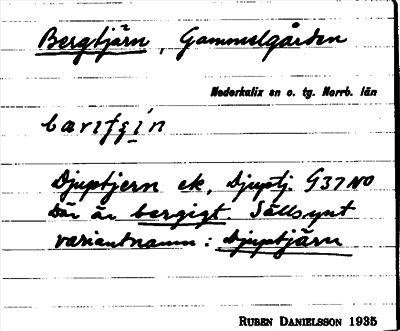 Bergtjärn, Gammelgården
Nederkalix sn o. tg. Norrb. län
Djuptjern ek, Djuptj. G37 NO
Där är bergigt. Sällsynt
variantnamn: Djuptjärn
RUBEN DANIELSSON 1935